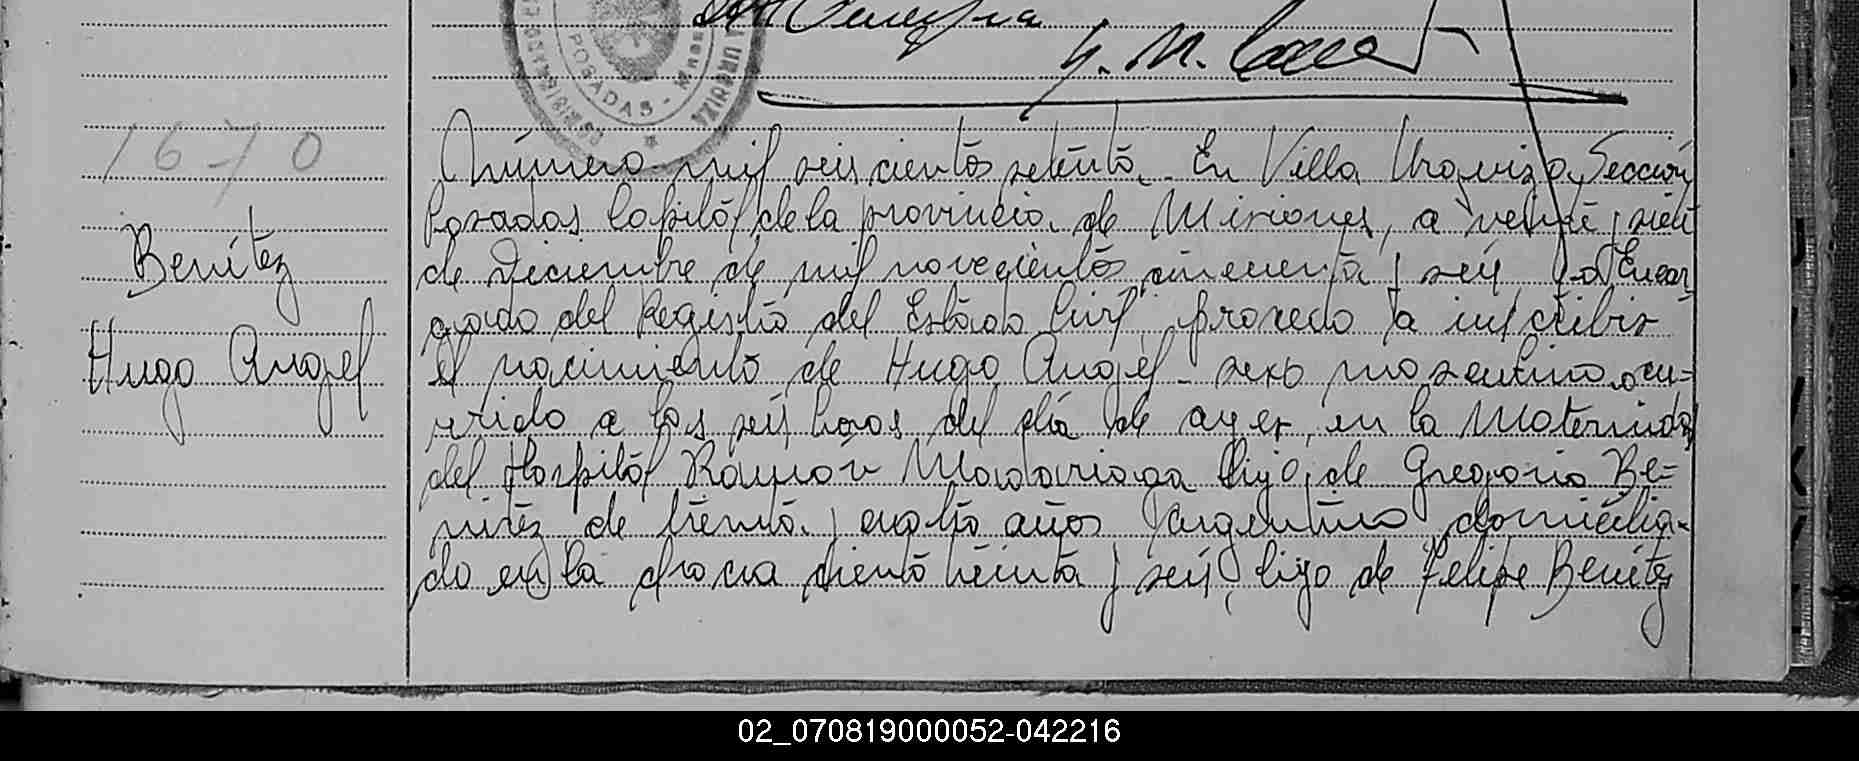 POSADAS
G. M.
1670
Número mil seiscientos setenta. En Villa Urquiza, Sección
Posadas Capital de la provincia de Misiones, a veinte y siete
Benítez
de Diciembre de mil novecientos cincuenta y seis, yo Encar
gado del Registro del Estado Civil procedo a inscribir
Hugo Angel
el nacimiento de Hugo Angel sexo masculino ocu=
rrido a las seis horas del día de ayer, en la Maternidad
del Hospital Ramón Madariaga hijo de Gregorio Be=
nitez de treinta y cuatro años argentino domicilia-
do en la chacra ciento treinta y seis, hijo de Felipe Benítez
02_070819000052-042216